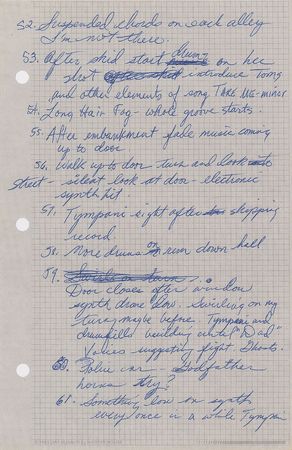 52. Suspended chords on each alley
I'm not there.
53. After skid start drums on her
shot introduce Toms
and other elements of song TAKE ME-minor
54. Long Hair Fog - whole groove starts.
55. After embankment fade music coming
up to door
56. Walk up to door turn and look
Street - silent look at door - electronic
synth hit
57. Tympani right after stopping
record
58. More drums on run down hall
59.
Door closes after window
synth drone low. Swirling on my
turn, maybe before. Tympani and
drumfills building until "Dad"
Voices suggesting fight Ghosts.
60. Police car - Godfather
horns try?
61. Something low on synth
every once in a while Tympani